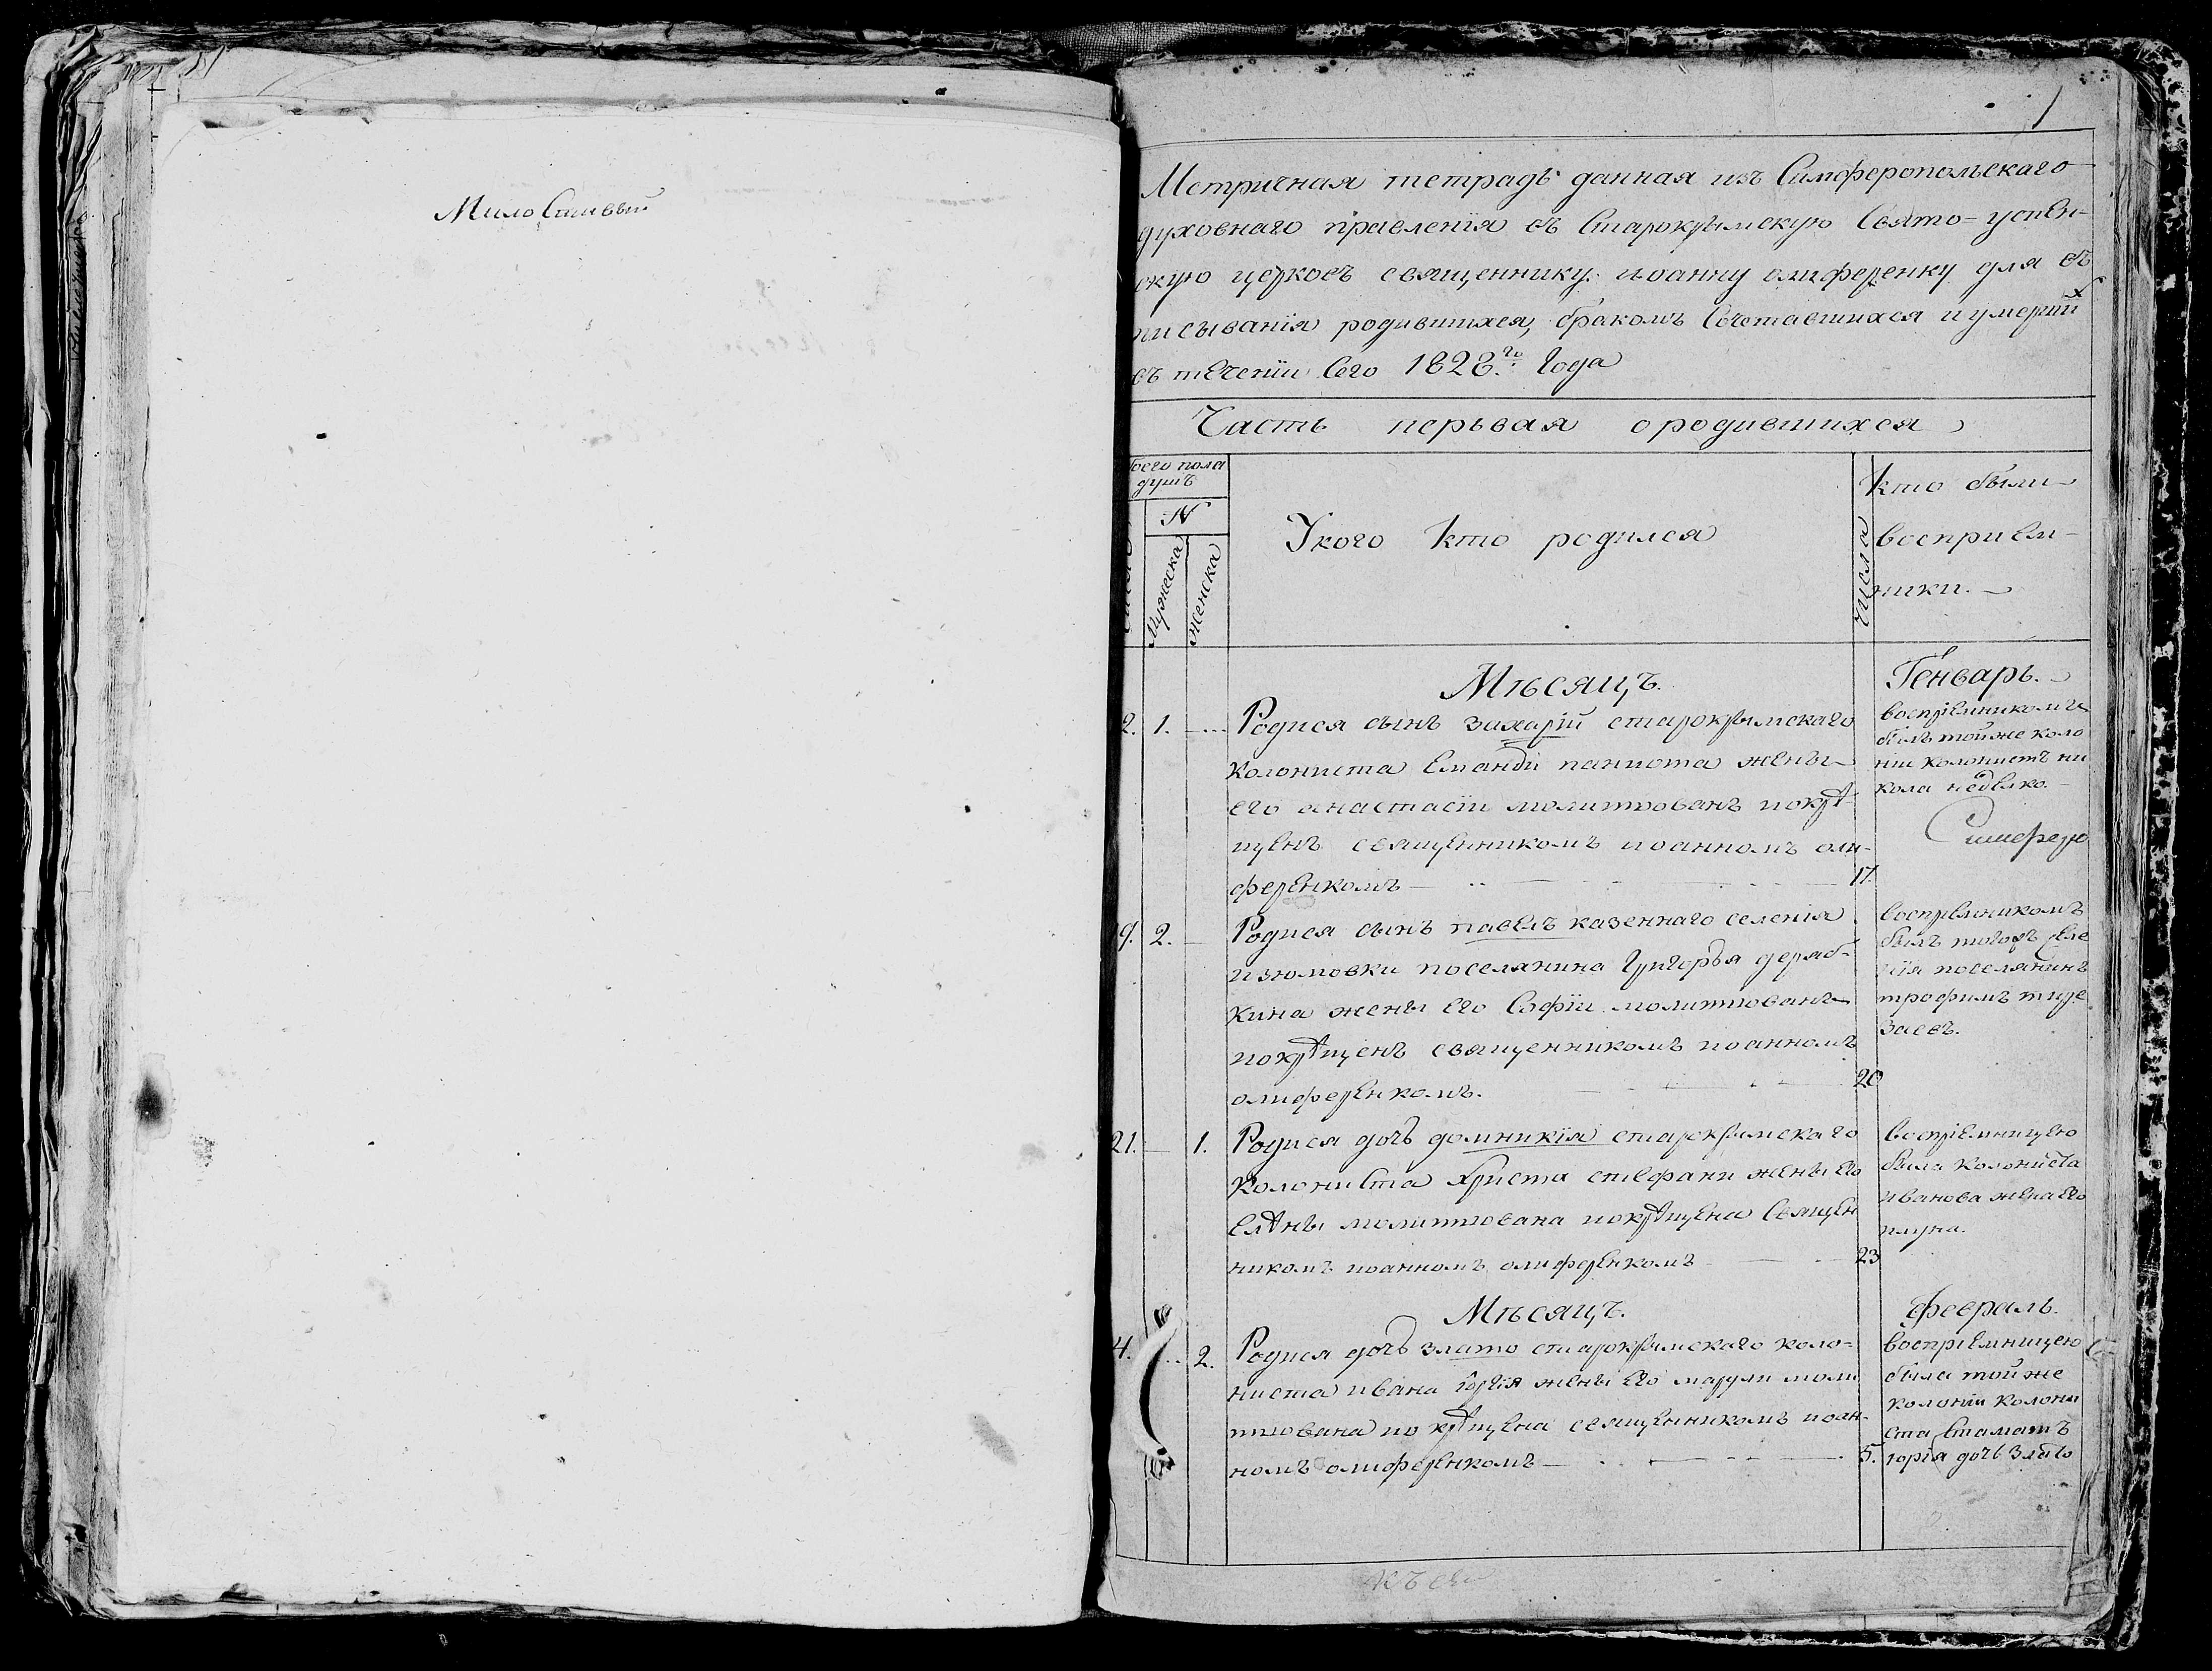 Мило Стивый
1
Метричная тетрадь данная изъ Симферопольскаго
духовнаго правленїя въ Старокрымскую Свято-успен-
скую церковь священнику иоанну олиференку для въ
писыванїя родившихся, бракомъ Сочетавшихся и умерших
въ теченїи Сего 1828.го Года
Часть первая о родившихся
боего пола
душъ
N
Мужеска
женска
У кого кто родился
числа
кто были
восприем-
ники.
Мѣсяцъ.
Генварь.
2. 1. Родися сынъ захарїй старокрымскаго
колониста Еманди паниота жены
его анастасїи молитвованъ покре-
щенъ священникомъ иоанномъ оли-
ференкомъ 17.
воспрїемникомъ
былъ тойже коло
нїи колонистъ ни
кола недѣлко.
19. 2. Родися сынъ павелъ казеннаго селенїя
изюмовки поселянина Григорья деряб-
кина жены его Софїи молитвованъ
покрещенъ священникомъ иоанномъ
олиференкомъ. 20
воспрїемникомъ
былъ тогожъ селе
нїя поселянинъ
трофимъ
заевъ.
21. 1. Родися дочь домникїя старокрымскаго
колониста Христа стефани жены его
елены молитвована покрещена Священ
никомъ иоанномъ олиференкомъ 23
воспрїемницею
была колониста
иванова жена его
Мѣсяцъ.
февраль.
4. 2. Родися дочь злато старокрымскаго коло-
ниста ивана юргїя жены его марули моли
твована покрещена священникомъ иоан-
номъ олиференкомъ 5.
воспрїемницею
была тойже
колонїи колони
ста Стаматъ
юргїя дочь злато